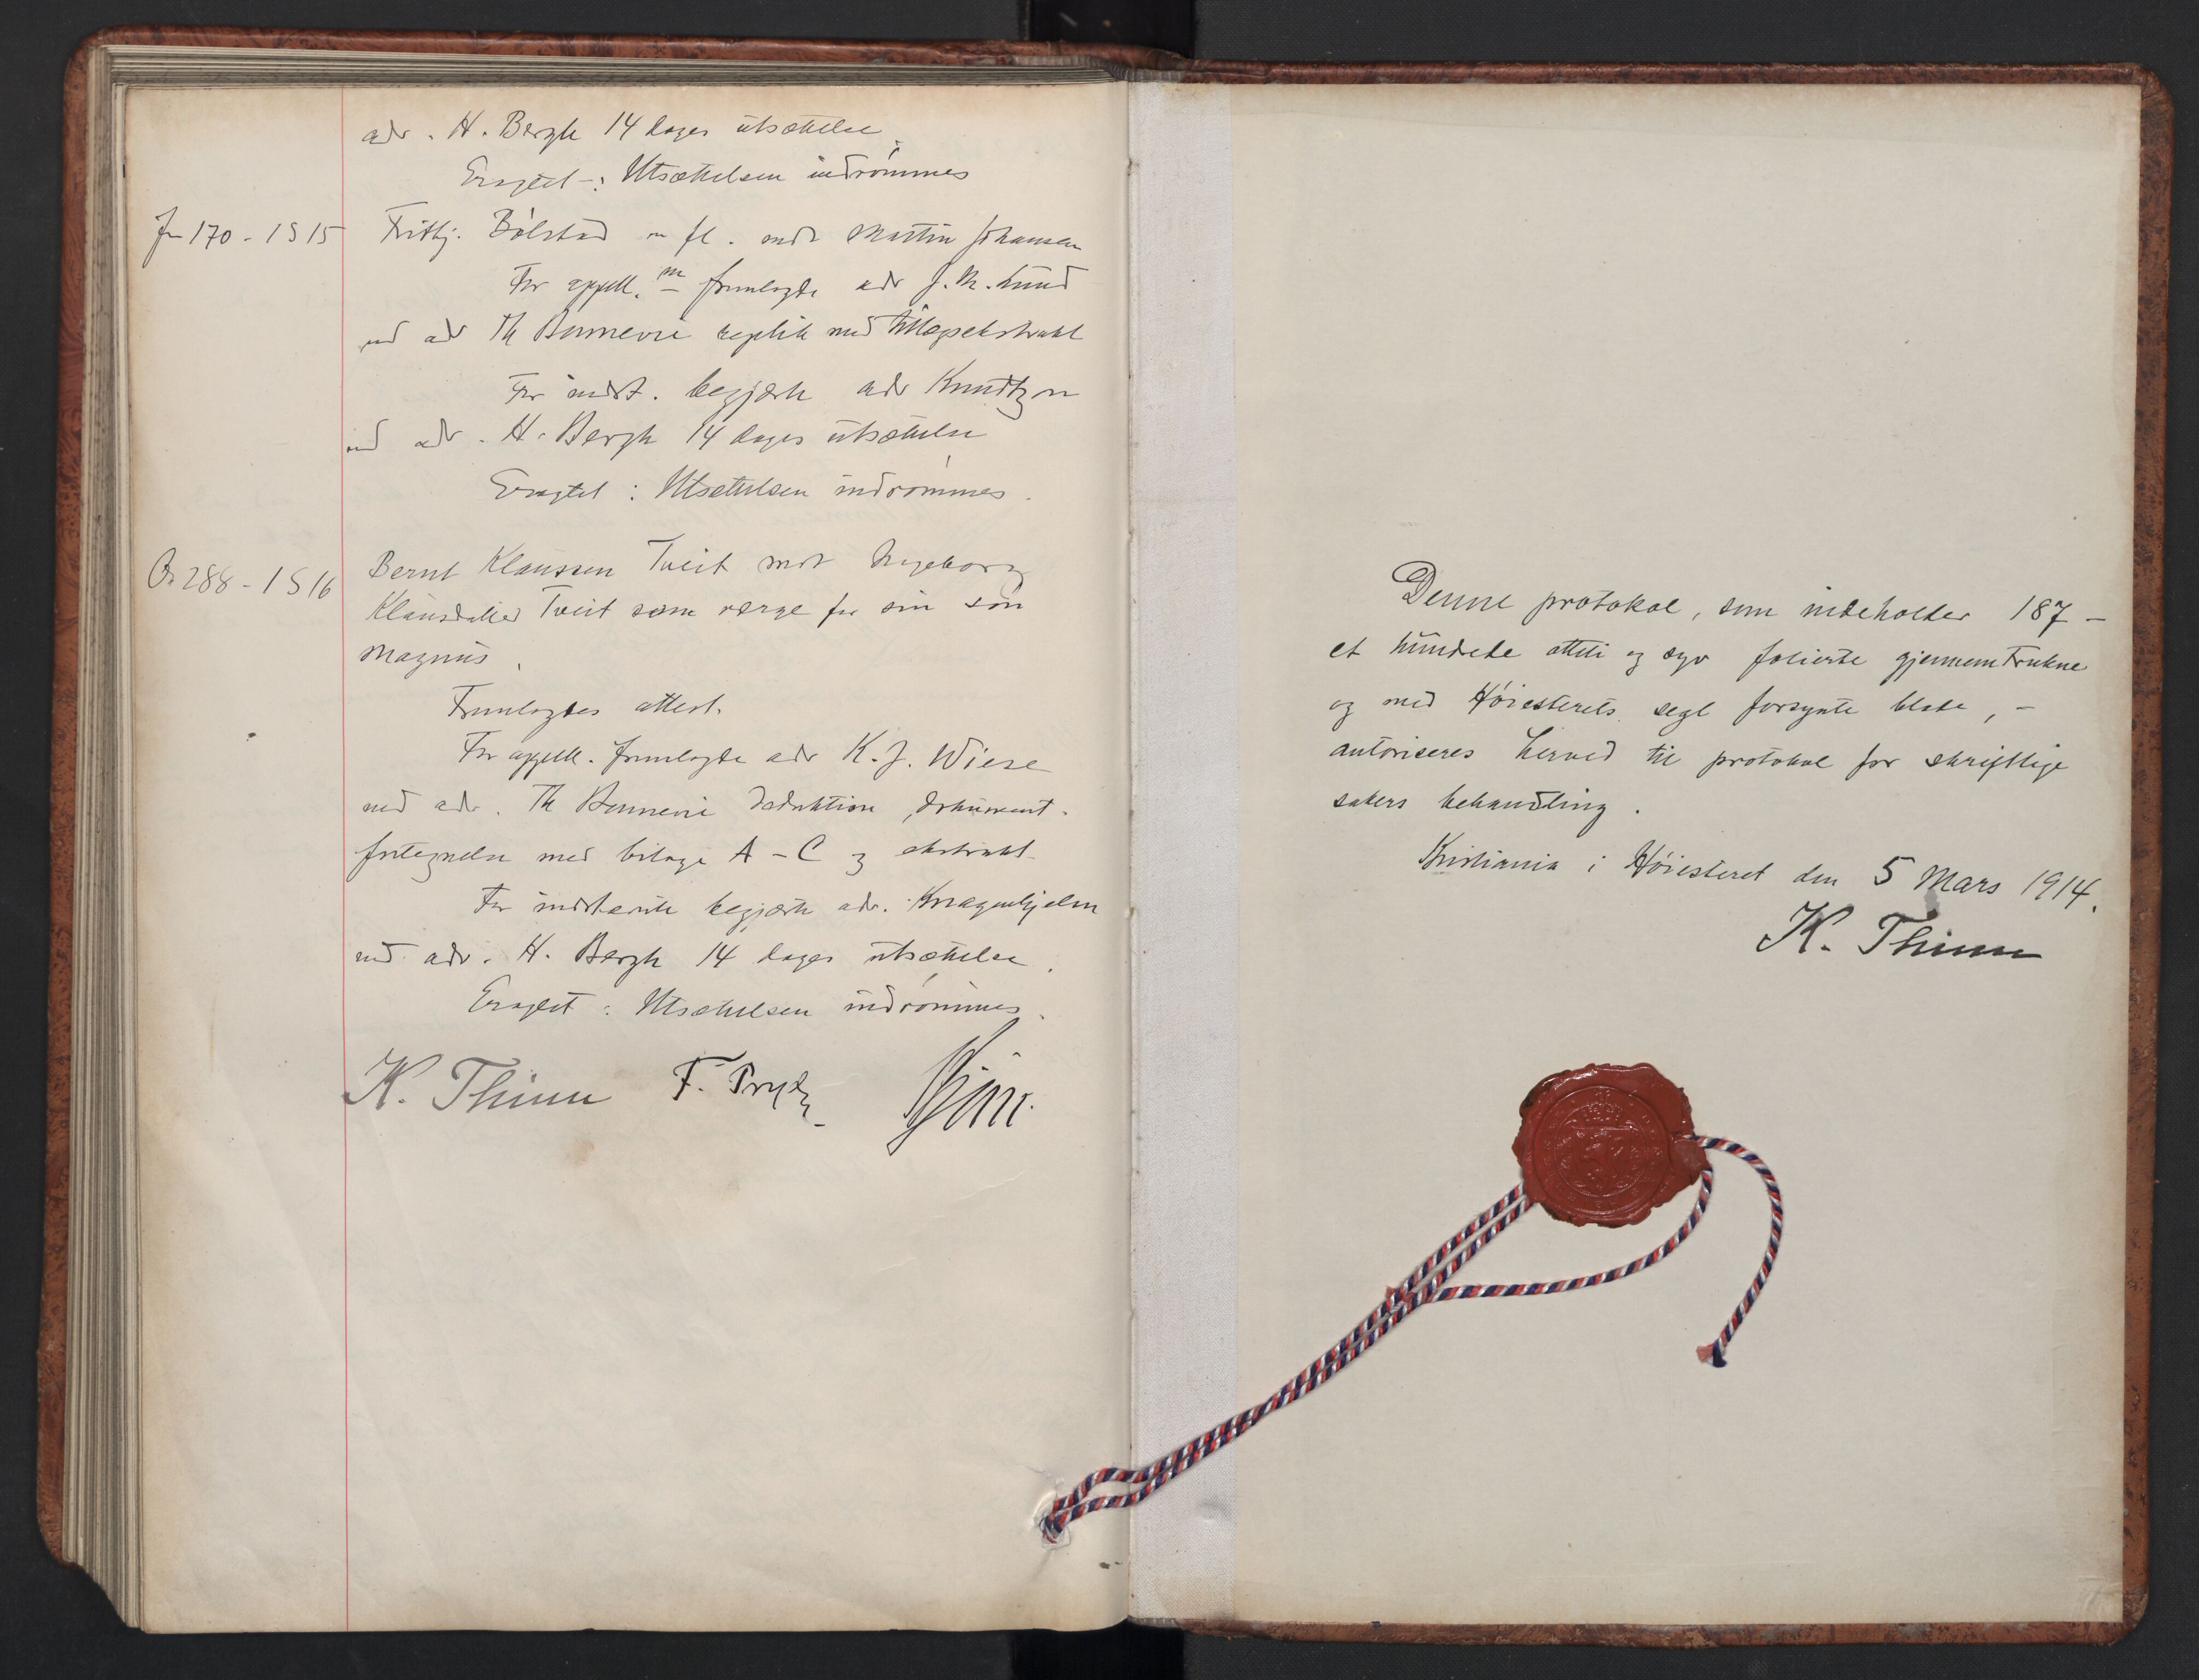 adv. H. Bergh 14 dages utsættelse
Eragtet: Utsættelsen indrømmes
170 - 1 S 15
Frithj. Bølstad m fl. mot Martin Johansen
For appell. m fremlagde adv J. M. Lund
ved adv Th Bonnevie replik med tillægsekstrakt
For indst. begjærte adv Knudtzon
ved adv. H. Bergh 14 dages utsættelse
Eragtet: Utsættelsen indrømmes.
288 - 1 S 16
Bernt Klaussen Tveit mot Ingeborg
Klausdatter Tveit som verge for sin søn
Magnus.
Fremlagdes attest.
For appell. fremlagde adv K. J. Wiese
ved adv. Th Bonnevie deduktion, dokument-
fortegnelse med bilage A - C og ekstrakt
For indstevnte begjærte adv. Knagenhjelm
ved adv. H. Bergh 14 dages utsættelse.
Eragtet: Utsættelsen indrømmes.
K. Thinn F. Prydz
Denne protokol, som indeholder 187 -
et hundrede otteti og syv folierte gjennemtrukne
og med Høiesterets segl forsynte blade, -
autoriseres herved til protokol for skriftlige
sakers behandling.
Kristiania i Høiesteret den 5 Mars 1914.
K. Thinn